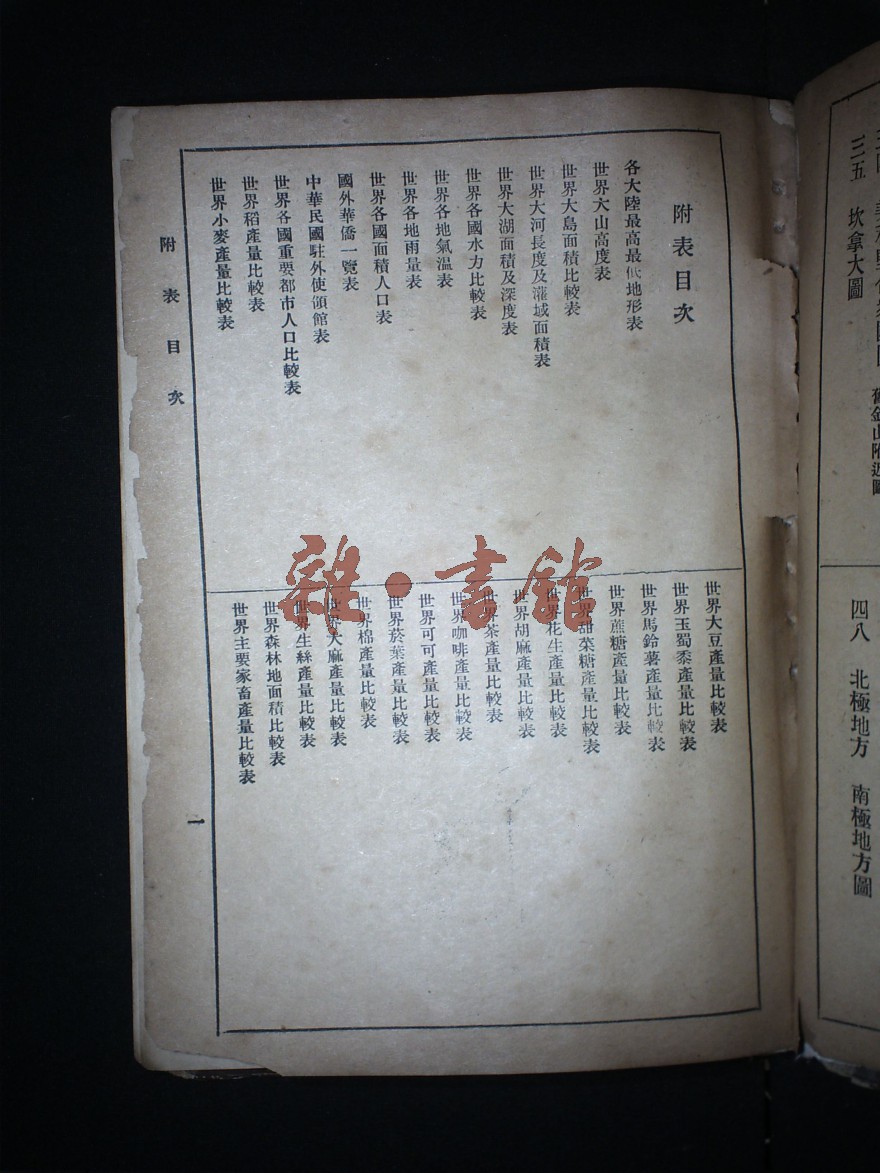 附表目次
各大陸最高最低地形表
世界大山高度表
世界大島面積比較表
世界大河長度及灌域面積表
世界大湖面積及深度表
世界各國水力比較表
世界各地氣溫表
世界各地雨量表
世界各國面積人口表
國外華僑一覽表
中華民國駐外使領館表
世界各國重要都市人口比較表
世界稻產量比較表
世界小麥產量比較表
世界大豆產量比較表
世界玉蜀黍產量比較表
世界馬鈴薯產量比較表
世界蔗糖產量比較表
世界甜菜糖產量比較表
世界花生產量比較表
世界胡麻產量比較表
世界茶產量比較表
世界咖啡產量比較表
世界可可產量比較表
世界菸葉產量比較表
世界棉產量比較表
世界大麻產量比較表
世界生絲產量比較表
世界森林地面積比較表
世界主要家畜產量比較表
附表目次
一
三五 坎拿大圖
四八 北極地方 南極地方圖
雜·書館